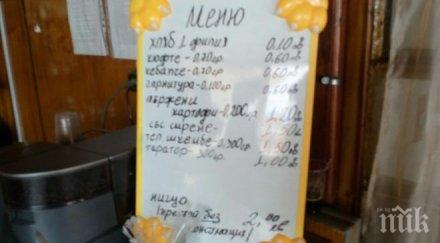 Меню
хляб 1 филия 0.10лв
кюфте-0.70гр 0.60лв
кебапче-0.70гр 0.60лв
гарнитура-0.100гр 0.60лв
пържени
картофи-0.200гр 1,20лв
със сирене- 1,50лв
тел шкембе-0.300гр 1,50лв
таратор-300гр 1,00лв
нищо 2,00
/престой без лв
консумация/
ПИК